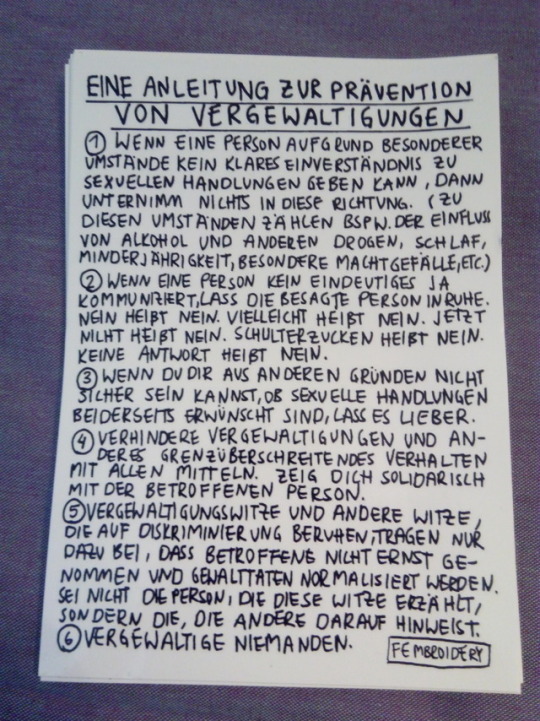 EINE ANLEITUNG ZUR PRÄVENTION
VON VERGEWALTIGUNGEN
① WENN EINE PERSON AUFGRUND BESONDERER
UMSTÄNDE KEIN KLARES EINVERSTÄNDNIS ZU
SEXUELLEN HANDLUNGEN GEBEN KANN, DANN
UNTERNIMM NICHTS IN DIESE RICHTUNG. (ZU
DIESEN UMSTÄNDEN ZÄHLEN BSPW. DER EINFLUSS
VON ALKOHOL UND ANDEREN DROGEN, SCHLAF,
MINDERJÄHRIGKEIT, BESONDERE MACHTGEFÄLLE, ETC.)
② WENN EINE PERSON KEIN EINDEUTIGES JA
KOMMUNIZIERT, LASS DIE BESAGTE PERSON IN RUHE.
NEIN HEIßT NEIN. VIELLEICHT HEIßT NEIN. JETZT
NICHT HEIßT NEIN. SCHULTERZUCKEN HEIßT NEIN.
KEINE ANTWORT HEIßT NEIN.
③ WENN DU DIR AUS ANDEREN GRÜNDEN NICHT
SICHER SEIN KANNST, OB SEXUELLE HANDLUNGEN
BEIDERSEITS ERWÜNSCHT SIND, LASS ES LIEBER.
④ VERHINDERE VERGEWALTIGUNGEN UND AN-
DERES GRENZÜBERSCHREITENDES VERHALTEN
MIT ALLEN MITTELN. ZEIG DICH SOLIDARISCH
MIT DER BETROFFENEN PERSON.
⑤ VERGEWALTIGUNGSWITZE UND ANDERE WITZE,
DIE AUF DISKRIMINIERUNG BERUHEN, TRAGEN NUR
DAZU BEI, DASS BETROFFENE NICHT ERNST GE-
NOMMEN UND GEWALTTATEN NORMALISIERT WERDEN.
SEI NICHT DIE PERSON, DIE DIESE WITZE ERZÄHLT,
SONDERN DIE, DIE ANDERE DARAUF HINWEIST.
⑥ VERGEWALTIGE NIEMANDEN.
FEMBROIDERY